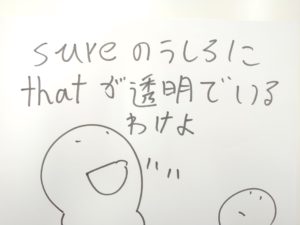 sureのうしろに
thatが透明でいる
わけよ